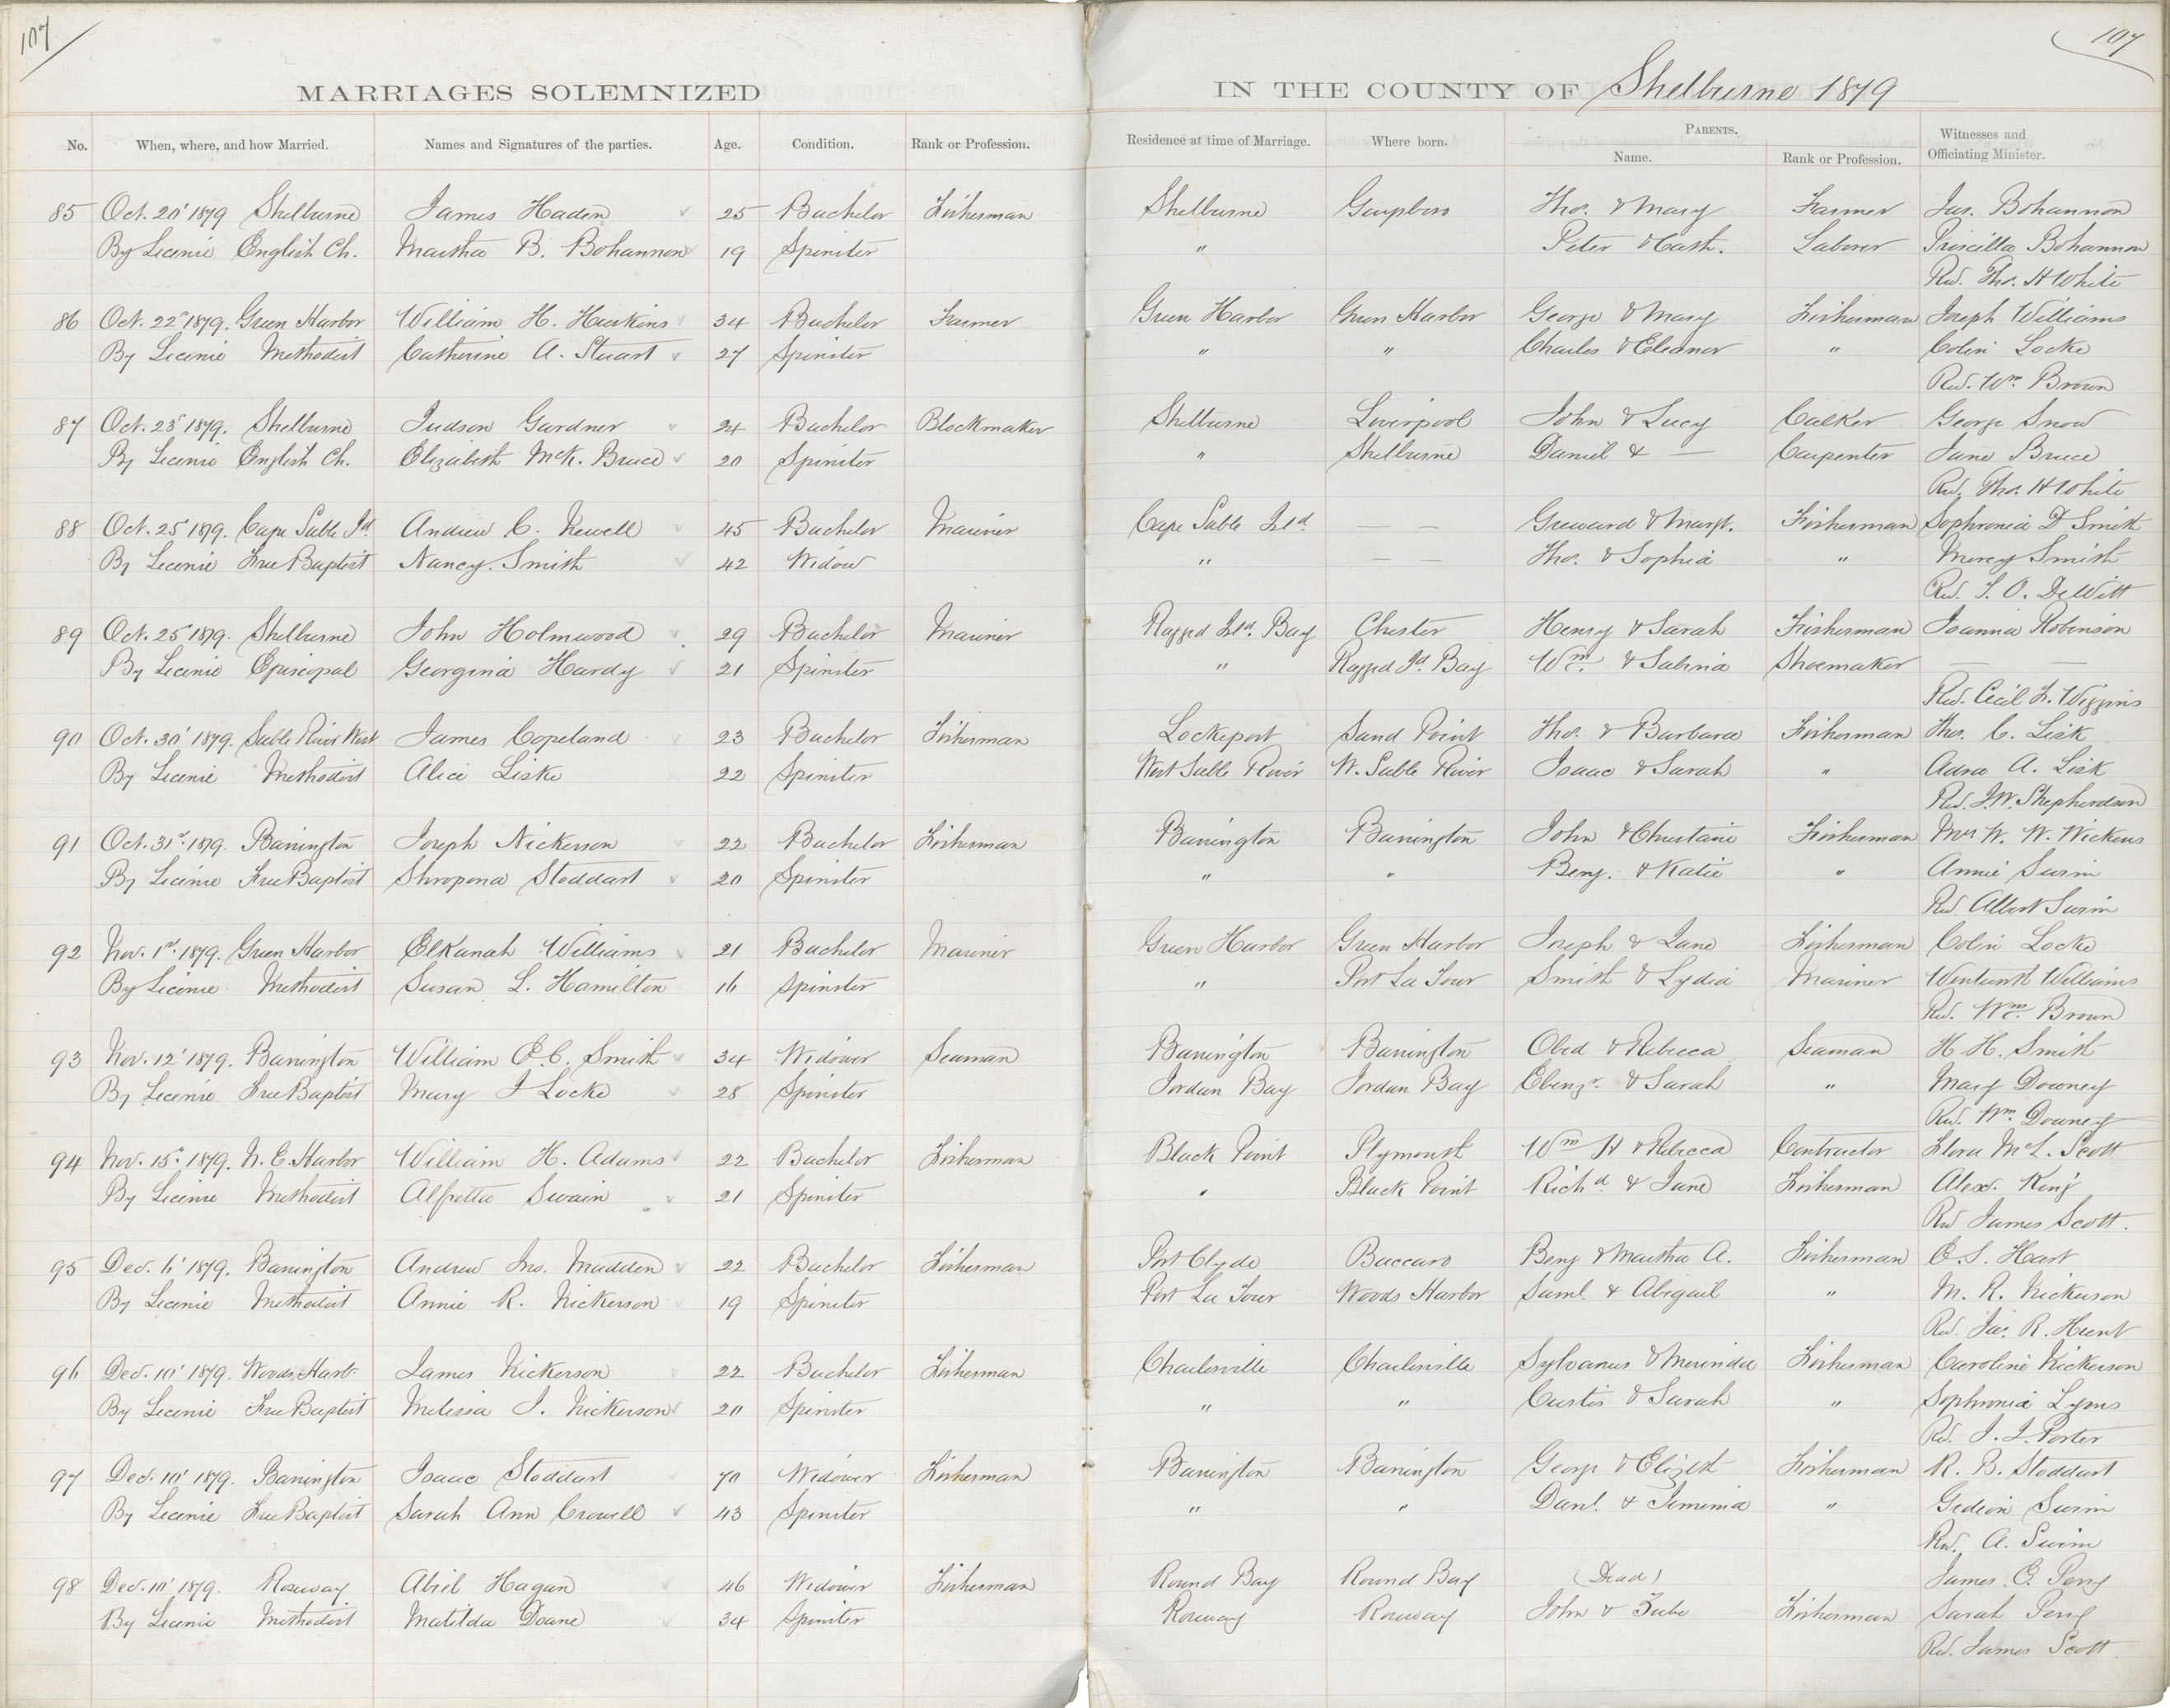 107
107
MARRIAGES SOLEMNIZED IN THE COUNTY OF Shelburne 1879
No. When, where, and how Married. Names and Signatures of the parties. Age. Condition. Rank or Profession. Residence at time of Marriage. Where born. PARENTS. Name. Rank or Profession. Witnesses and Officiating Minister.
85 Oct. 20' 1879 Shelburne James Haden 25 Bachelor Fisherman Shelburne Guysboro Thos. & Mary Farmer Jas. Bohannon
By Licenie English Ch. Martha B. Bohannon 19 Spinster " Peter & Cath. Laborer Priscilla Bohannon
Rev. Thos. H White
86 Oct. 22" 1879. Green Harbor William H. Huskins 34 Bachelor Farmer Green Harbor Green Harbor George & Mary Fisherman Joseph Williams
By Licenie Methodist Catherine A. Stuart 27 Spinster " " Charles & Eleanor " Colin Locke
Rev. Wm. Brown
87 Oct. 23' 1879. Shelburne Judson Gardner 24 Bachelor Blockmaker Shelburne Liverpool John & Lucy Calker George Snow
By Licenie English Ch. Elizabeth McK. Bruce 20 Spinster " Shelburne Daniel & — Carpenter Jane Bruce
Rev. Thos. H White
88 Oct. 25' 1879. Cape Sable Id. Andrew C. Newell 45 Bachelor Mariner Cape Sable Isld. — — & Margt. Fisherman Sophronia D Smith
By Licenie Free Baptist Nancy. Smith 42 Widow " — — Thos. & Sophia " Mercy Smith
Rev. T. O. DeWitt
89 Oct. 25' 1879. Shelburne John Holmwood 29 Bachelor Mariner Ragged Isld. Bay Chester Henry & Sarah Fisherman Joanna Robinson
By Licenie Episcopal Georgina Hardy 21 Spinster " Ragged Id. Bay Wm. & Sabina Shoemaker — —
Rev. Cecil F. Wiggins
90 Oct. 30' 1879. Sable River West James Copeland 23 Bachelor Fisherman Lockeport Sand Point Thos. & Barbara Fisherman Thos. C. Lisk
By Licenie Methodist Alice Liske 22 Spinster West Sable River W. Sable River Isaac & Sarah " Adra A. Lisk
Rev. J.W. Shepherdson
91 Oct. 31st. 1879. Barrington Joseph Nickerson 22 Bachelor Fisherman Barrington Barrington John & Christain Fisherman Mrs W. W. Wickens
By Licenie Free Baptist Shropona Stoddart 20 Spinster " " Benj. & Katie " Annie Swim
Rev Albert Swim
92 Nov. 1st. 1879. Green Harbor Elkanah Williams 21 Bachelor Mariner Green Harbor Green Harbor Joseph & Jane Fisherman Colin Locke
By Licenie Methodist Susan L. Hamilton 16 Spinster " Port La Tour Smith & Lydia Mariner Wentworth Williams
Rev. Wm. Brown
93 Nov. 12' 1879. Barrington William E.C. Smith 34 Widower Seaman Barrington Barrington Obed & Rebecca Seaman H. H. Smith
By Licenie Free Baptist Mary J Locke 28 Spinster Jordan Bay Jordan Bay Ebenzr. & Sarah " Mary Downey
Rev. Wm. Downey
94 Nov. 15". 1879. N. E. Harbor William H. Adams 22 Bachelor Fisherman Black Point Plymouth Wm H & Rebecca Contractor Flora McL. Scott
By Licenie Methodist Alfretta Swain 21 Spinster " Black Point Richd & Jane Fisherman Alex. King
Rev James Scott.
95 Dec. 6' 1879. Barrington Andrew Jno. Madden 22 Bachelor Fisherman Port Clyde Baccaro Benj & Martha A. Fisherman E. S. Hart
By Licenie Methodist Annie R. Nickerson 19 Spinster Port La Tour Woods Harbor Saml. & Abigail " M. R. Nickerson
Rev. Jas. R. Hunt
96 Dec. 10' 1879. Woods Harb. James Nickerson 22 Bachelor Fisherman Charlesville Charlesville Sylvanus & Merinda Fisherman Caroline Nickerson
By Licenie Free Baptist Melissa J. Nickerson 20 Spinster " " Curtis & Sarah " Sophronia Lyons
Rev. J. I. Porter
97 Dec. 10' 1879. Barrington Isaac Stoddart 70 Widower Fisherman Barrington Barrington George & Elizth Fisherman R. B. Stoddart
By Licenie Free Baptist Sarah Ann Crowell 43 Spinster " " Danl. & Jemimia " Gideon Swim
Rev. A. Swim
98 Dec. 10' 1879. Roseway Abiel Hagan 46 Widower Fisherman Round Bay Round Bay (Dead) James E. Perry
By Licenie Methodist Matilda Doane 34 Spinster Roseway Roseway John & Zube Fisherman Sarah Perry
Rev. James Scott